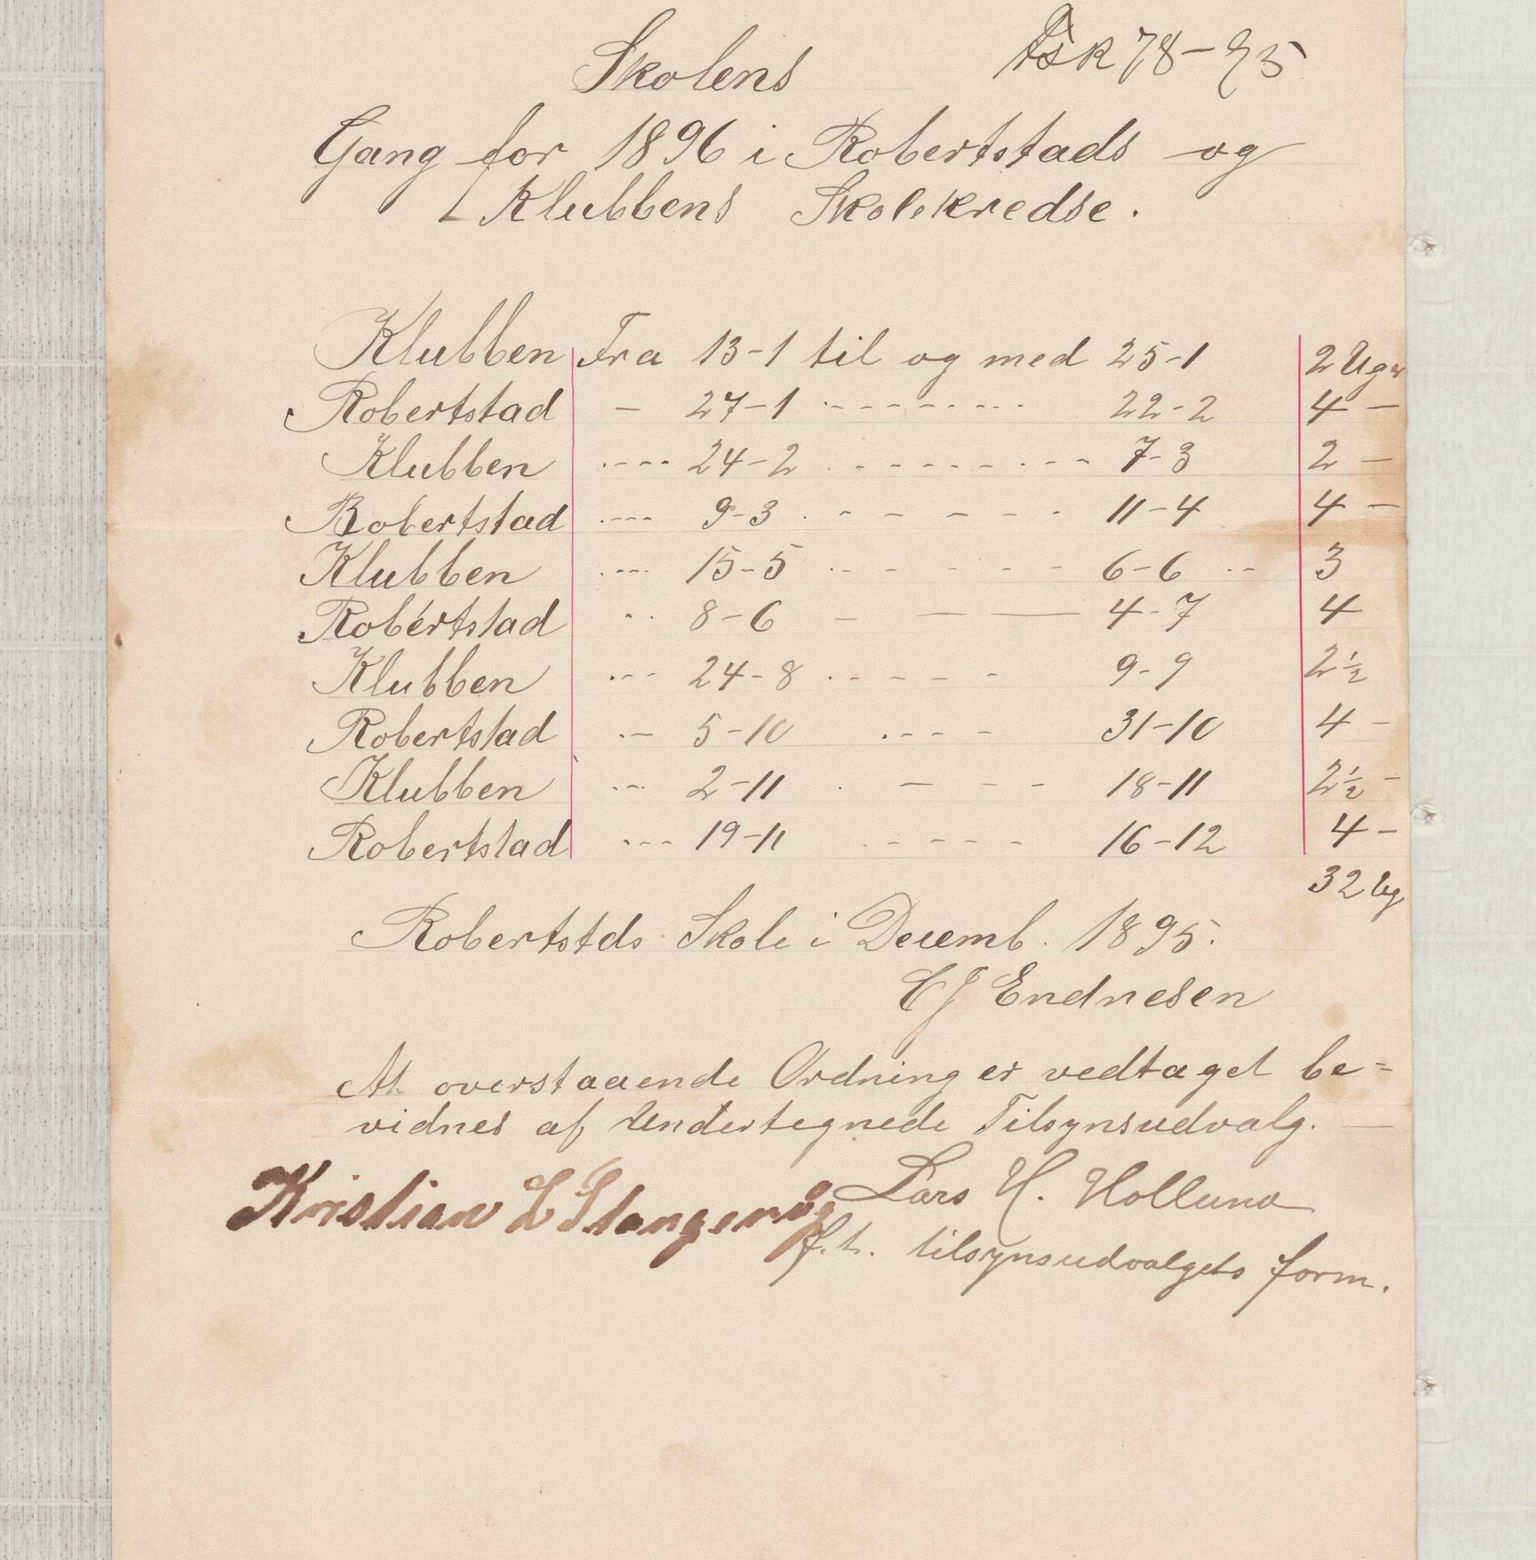 Skolens
Fsk 78-95
Gang for 1896 i Robertstads og
Klubbens Skolekredse.
Klubben Fra 13-1 til og med 25-1 2 Uger
Robertstad - 27-1 - - - - - - - 22-2 4 -
Klubben - - - - 24-2 - - - - - - - - - 7-3 2 -
Robertstad - - - - 9-3 - - - - - - 11-4 4 -
Klubben - - - 15-5 - - - - - - 6-6 - - 3
Robertstad - - 8-6 - — — 4-7 4
Klubben - - - 24-8 - - - - - 9-9 2½
Robertstad - - 5-10 - - - - - 31-10 4 -
Klubben - - - 2-11 - - - - 18-11 2½ -
Robertstad - - - 19-11 - - - - - 16-12 4 -
32 Ug
Robertstds Skole i Decemb. 1895.
CJ Endresen
At overstaaende Ordning er vedtaget be=
vidnes af Undertegnede Tilsynsudvalg. —
Kristian L Stangervåg Lars H. Hollund
f.t. tilsynsudvalgets form.